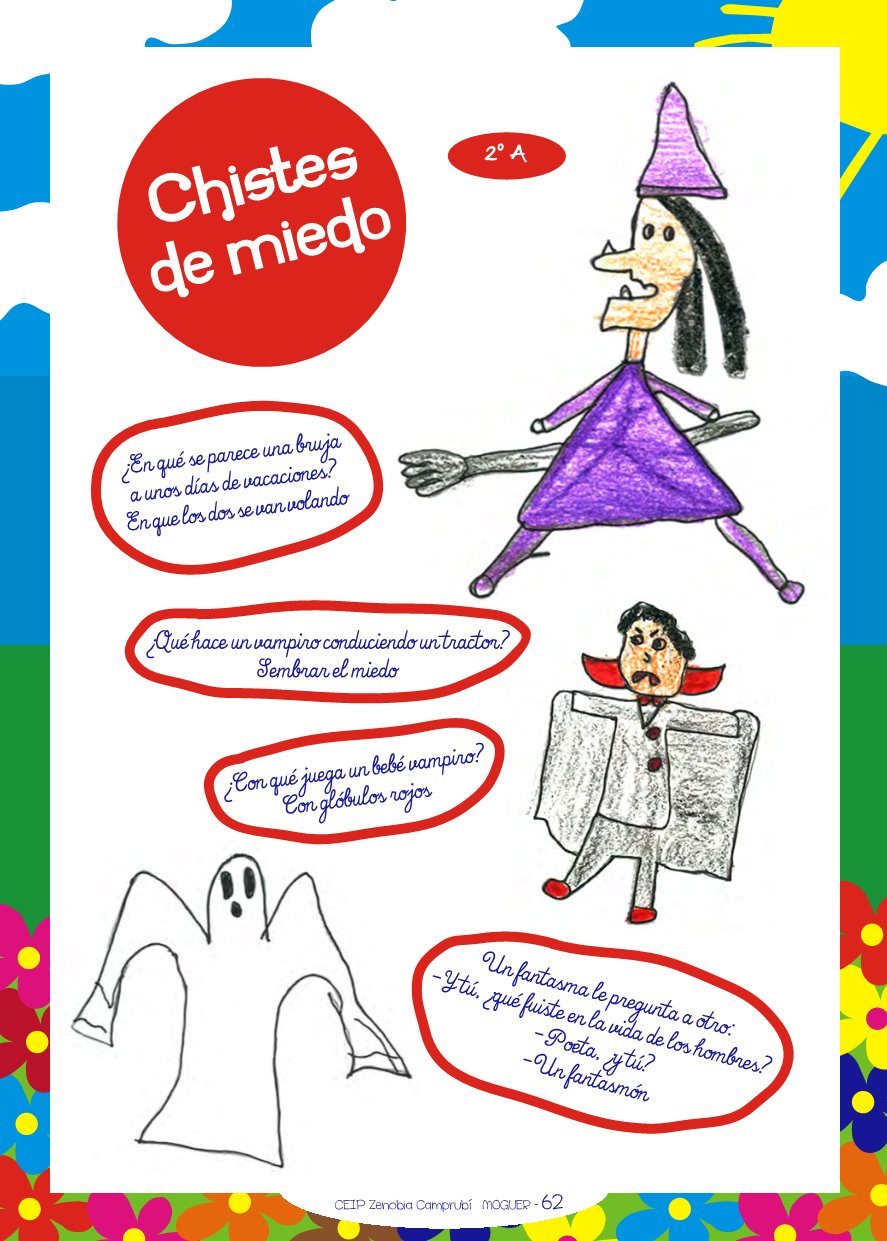 Chistes
de miedo
2º A
¿En qué se parece una bruja
a unos días de vacaciones?
En que los dos se van volando
¿Qué hace un vampiro conduciendo un tractor?
Sembrar el miedo
¿Con qué juega un bebé vampiro?
Con glóbulos rojos
Un fantasma le pregunta a otro:
-Y tú, ¿qué fuiste en la vida de los hombres?
-Poeta, ¿y tú?
-Un fantasmón
CEIP Zenobia Camprubí MOGUER - 62